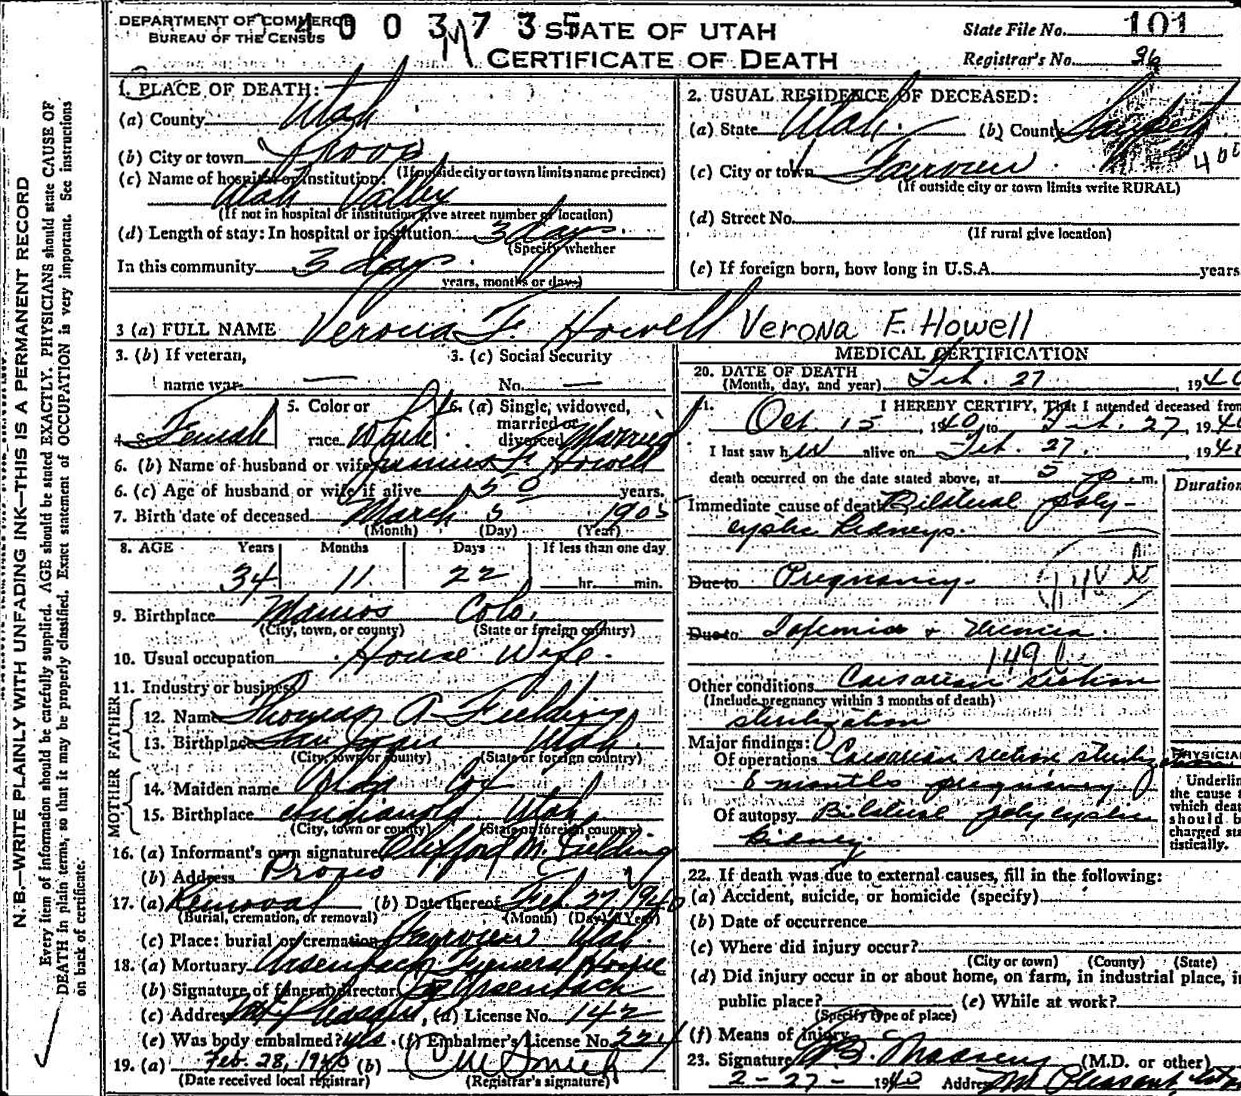 N.B.—WRITE PLAINLY WITH UNFADING INK—THIS IS A PERMANENT RECORD
Every item of information should be carefully supplied. AGE should be stated EXACTLY. PHYSICIANS should state CAUSE OF
DEATH in plain terms, so that it may be properly classified. Exact statement of OCCUPATION is very important. See instructions
on back of certificate.
DEPARTMENT OF COMMERCE
BUREAU OF THE CENSUS
4003735
STATE OF UTAH
CERTIFICATE OF DEATH
State File No. 101
Registrar's No. 36
1. PLACE OF DEATH:
(a) County Utah
(b) City or town Provo
(If outside city or town limits name precinct)
(c) Name of hospital or institution:
Utah Valley
(If not in hospital or institution give street number or location)
(d) Length of stay: In hospital or institution 3 days.
(Specify whether
In this community 3 days.
years, months or days)
2. USUAL RESIDENCE OF DECEASED:
(a) State Utah. (b) County Sanpete
(c) City or town Fairview 400
(If outside city or town limits write RURAL)
(d) Street No.
(If rural give location)
(e) If foreign born, how long in U.S.A. years
3 (a) FULL NAME Verona F. Howell Verona F. Howell
3. (b) If veteran,
name war —
3. (c) Social Security
No. —
4. Female
5. Color or
race White
6. (a) Single, widowed,
married or
divorced Married
6. (b) Name of husband or wife Junius F. Howell
6. (c) Age of husband or wife if alive 50 years.
7. Birth date of deceased March 5 1905
(Month) (Day) (Year)
8. AGE Years Months Days If less than one day
34 11 22 hr. min.
9. Birthplace Mancos Colo.
(City, town, or county) (State or foreign country)
10. Usual occupation House Wife.
11. Industry or business
FATHER
12. Name Thomas A Fielding
13. Birthplace San Juan Utah.
(City, town or county) (State or foreign country)
MOTHER
14. Maiden name Cox
15. Birthplace Indianola Utah
(City, town or county) (State or foreign country)
16. (a) Informant's own signature Clifford M. Fielding
(b) Address Provo
17. (a) Removal (b) Date thereof Feb. 27, 1940
(Burial, cremation, or removal) (Month) (Day) (Year)
(c) Place: burial or cremation Fairview Utah.
18. (a) Mortuary Ursenbach Funeral Home
(b) Signature of funeral director Ursenbach
(c) Address Mt Pleasant, (d) License No. 142
(e) Was body embalmed? yes. (f) Embalmer's License No. 224
19. (a) Feb. 28, 1940 (b)
(Date received local registrar) (Registrar's signature)
MEDICAL CERTIFICATION
20. DATE OF DEATH
(Month, day, and year) Feb. 27, 1940
21. I HEREBY CERTIFY, That I attended deceased from
Oct. 15, 1940 to Feb. 27, 1940
I last saw her alive on Feb. 27. 1940
death occurred on the date stated above, at 5 p.m.
Duration
Immediate cause of death Bilateral poly-
cystic kidneys.
Due to Pregnancy.
Due to Toxemia + Uremia.
149
Other conditions Caesarian section
(Include pregnancy within 3 months of death)
sterilization
Major findings:
Of operations Caesarian section
6 months pregnancy
Of autopsy Bilateral polycystic
kidney.
PHYSICIAN
Underlin
the cause t
which deat
should b
charged sta
tistically.
22. If death was due to external causes, fill in the following:
(a) Accident, suicide, or homicide (specify)
(b) Date of occurrence
(c) Where did injury occur?
(City or town) (County) (State)
(d) Did injury occur in or about home, on farm, in industrial place, in
public place? (e) While at work?
(Specify type of place)
(f) Means of injury
23. Signature Madsen (M.D. or other)
2-27-1940 Address Mt Pleasant, Utah